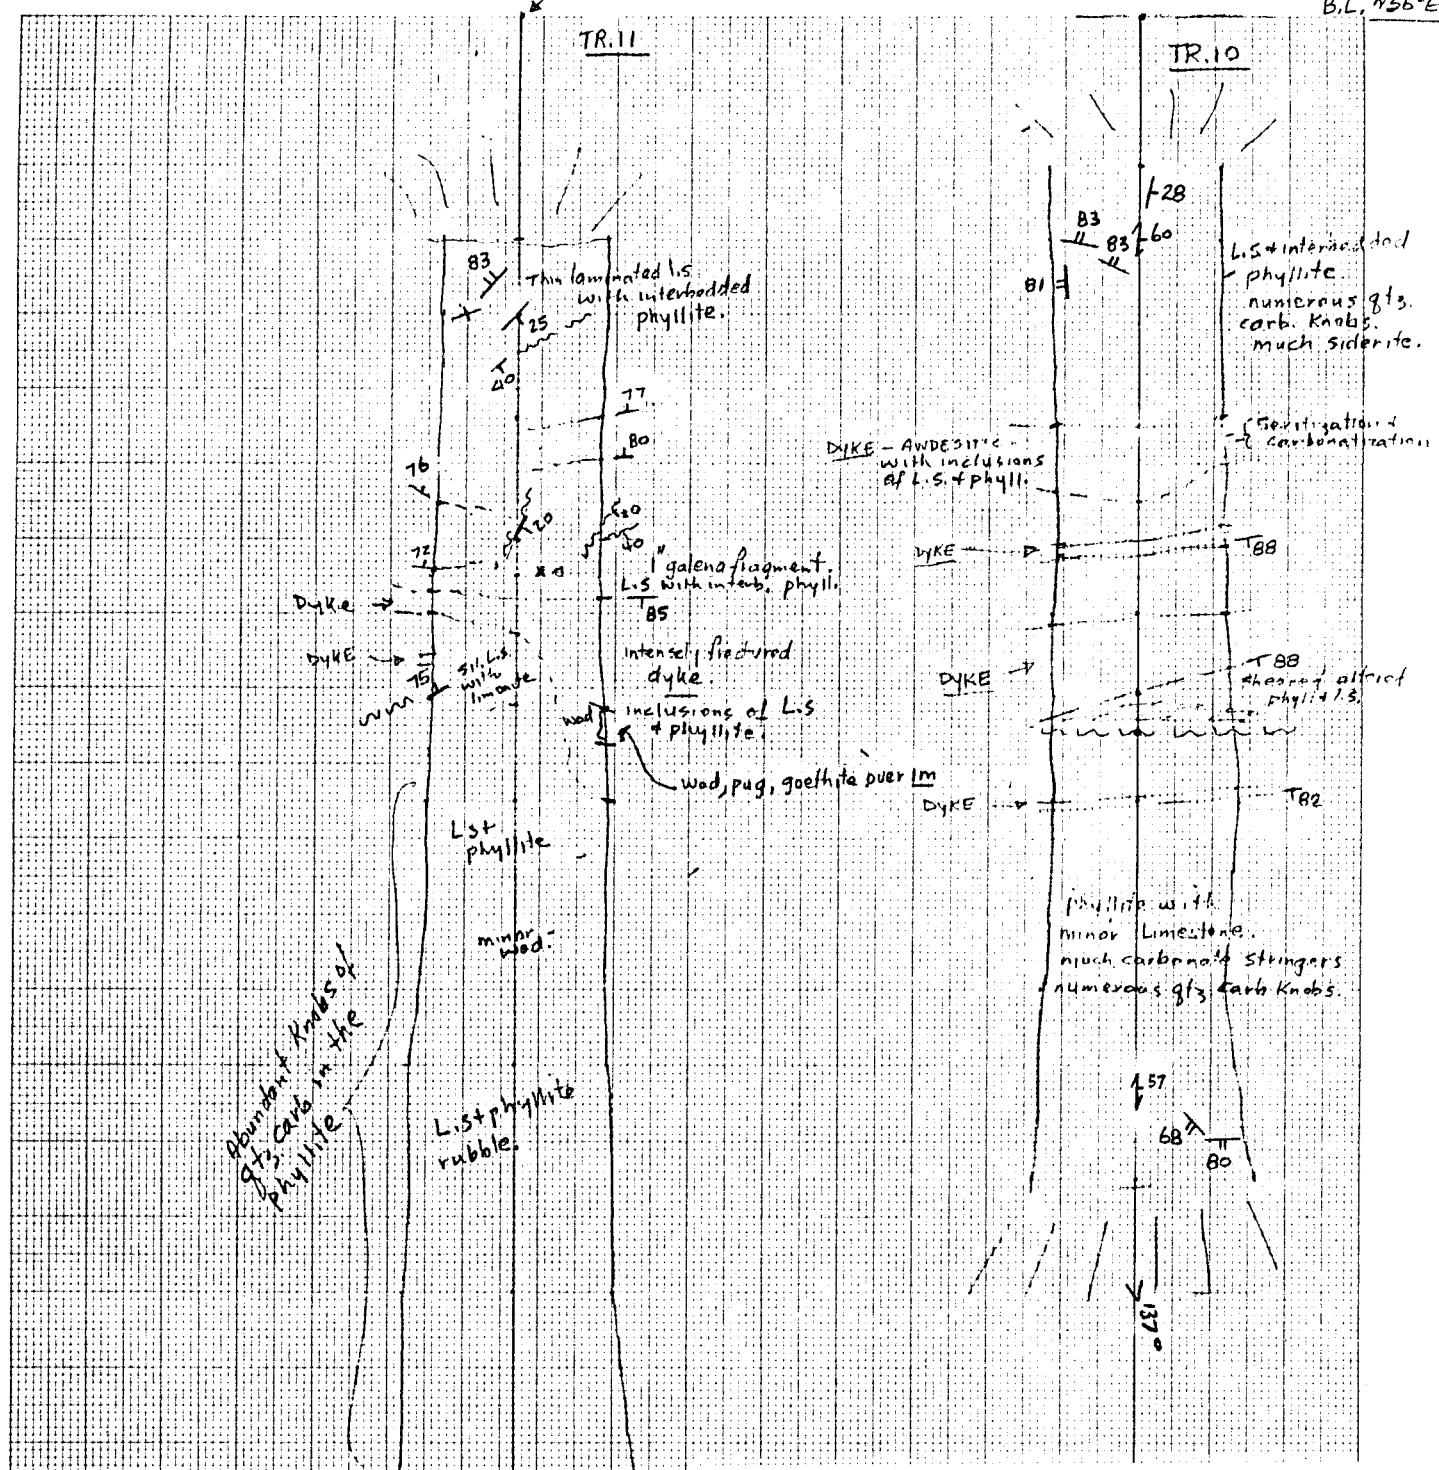 B.L. N56°E
TR.11
TR.10
83
Thin laminated l.s
with interbedded
phyllite.
25
40
77
80
76
20
20
40
72
1" galena fragment.
L.S with interb. phyll.
85
DYKE
DYKE
75
sil. L.S.
with
limonite
intensely fractured
dyke.
inclusions of L.S
+ phyllite.
wad
wad, pug, goethite over 1m
L.S+
phyllite
minor
wad.
Abundant Knobs of
qtz. carb in the
phyllite
L.S+phyllite
rubble.
28
83
83
60
81
L.S + interbedded
phyllite
numerous qtz.
carb. Knobs.
much siderite.
DYKE - ANDESITIC
with inclusions
of L.S. + phyll.
Seritization +
carbonatization
DYKE
88
DYKE
88
sheared altered
phyll + l.s.
DYKE
82
phyllite with
minor Limestone.
much carbonate Stringers
numerous qtz carb Knobs.
57
68
80
137°